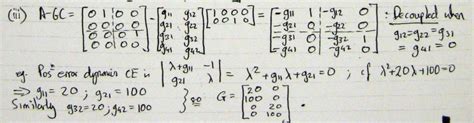 (iii) A-GC = [0 1 0 0; 0 0 0 0; 0 0 0 1; 0 0 0 0] - [g11 g12; g21 g22; g31 g32; g41 g42] [1 0 0 0; 0 0 1 0] = [-g11 1 -g12 0; -g21 0 -g22 0; -g31 0 -g32 1; -g41 0 -g42 0] : Decoupled when
g12=g22=g31
=g41=0
eg. Pos error dynamics CE is |λ+g11 -1; g21 λ| = λ²+g11λ+g21=0 ; if λ²+20λ+100=0
⇒ g11=20 ; g21=100
Similarly g32=20 ; g42=100 } so G = [20 0; 100 0; 0 20; 0 100]